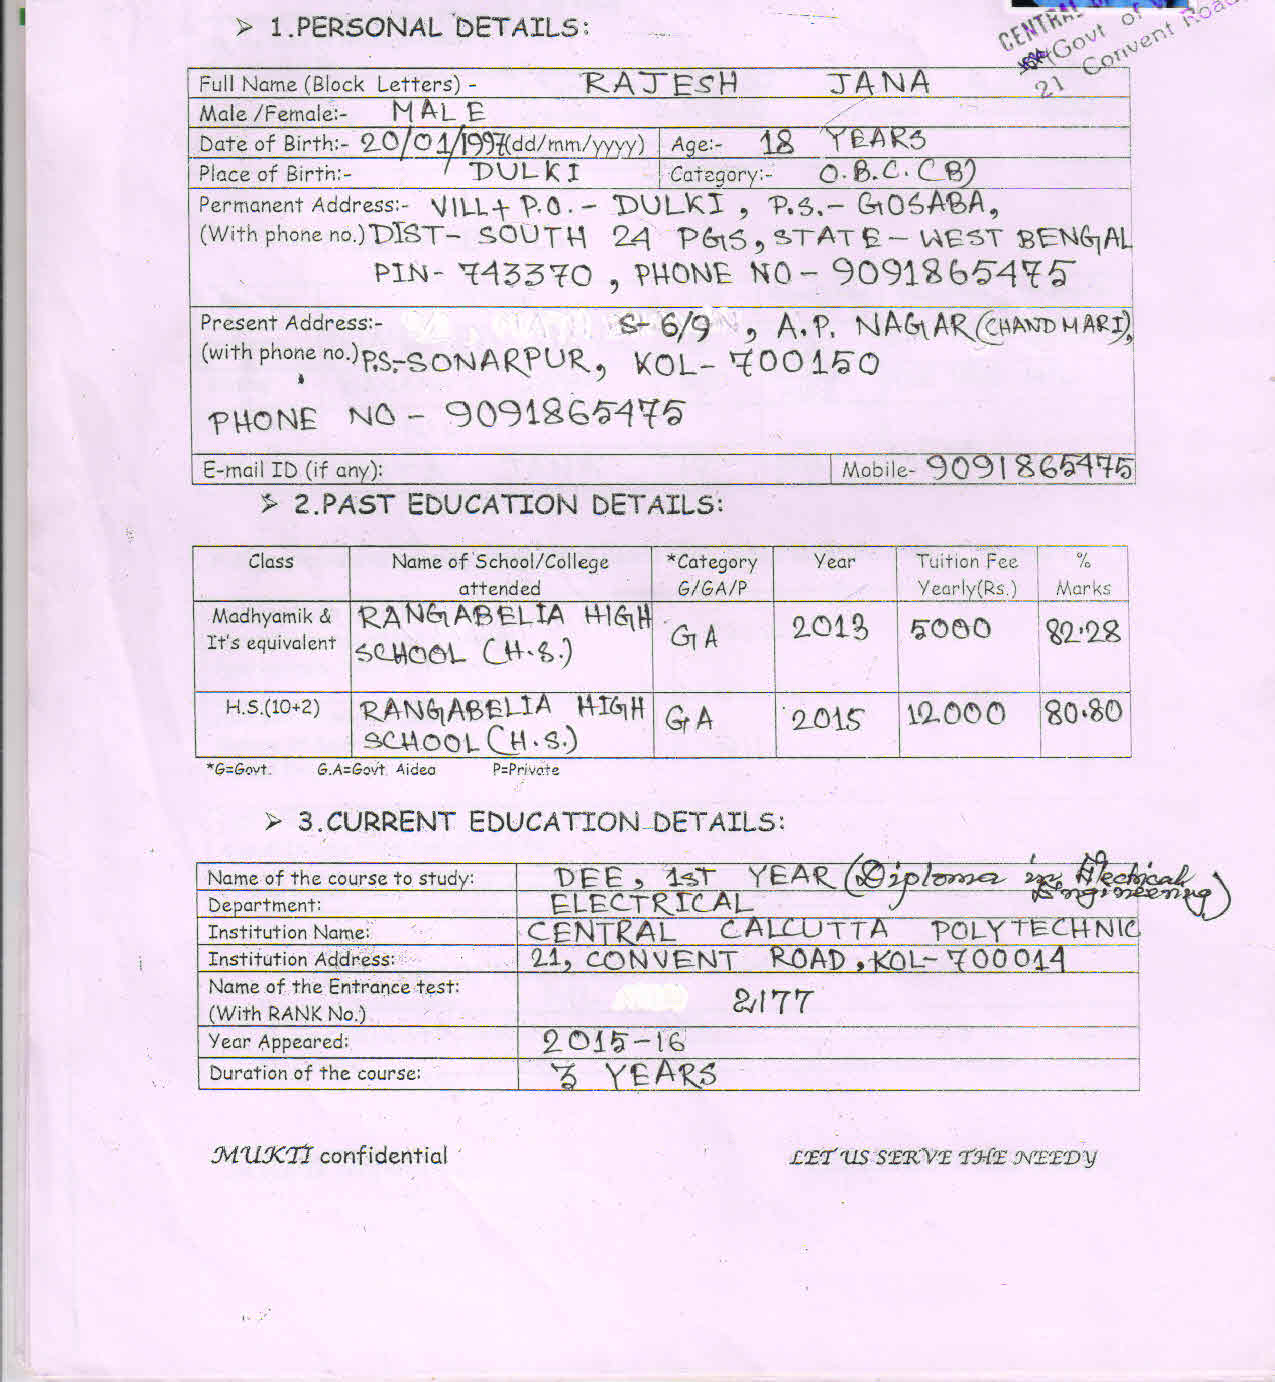 ➢ 1.PERSONAL DETAILS:
CENTRAL
(Govt of
21 Convent Road
Full Name (Block Letters) - RAJESH JANA
Male /Female:- MALE
Date of Birth:- 20/01/1997(dd/mm/yyyy) Age:- 18 YEARS
Place of Birth:- DULKI Category:- O.B.C.(B)
Permanent Address:- VILL+ P.O.- DULKI, P.S.- GOSABA,
(With phone no.) DIST- SOUTH 24 PGS, STATE- WEST BENGAL
PIN- 743370, PHONE NO- 9091865475
Present Address:- S-6/9, A.P. NAGAR (CHANDMARI),
(with phone no.) P.S.-SONARPUR, KOL-700150
PHONE NO - 9091865475
E-mail ID (if any): Mobile- 9091865475
➢ 2.PAST EDUCATION DETAILS:
Class Name of School/College *Category Year Tuition Fee %
attended G/GA/P Yearly(Rs.) Marks
Madhyamik & RANGABELIA HIGH GA 2013 5000 82.28
It's equivalent SCHOOL (H.S.)
H.S.(10+2) RANGABELIA HIGH GA 2015 12000 80.80
SCHOOL (H.S.)
*G=Govt. G.A=Govt. Aided P=Private
➢ 3.CURRENT EDUCATION DETAILS:
Name of the course to study: DEE, 1ST YEAR (Diploma in Electrical
Engineering)
Department: ELECTRICAL
Institution Name: CENTRAL CALCUTTA POLYTECHNIC
Institution Address: 21, CONVENT ROAD, KOL-700014
Name of the Entrance test:
(With RANK No.) 2177
Year Appeared: 2015-16
Duration of the course: 3 YEARS
MUKTI confidential LET US SERVE THE NEEDY